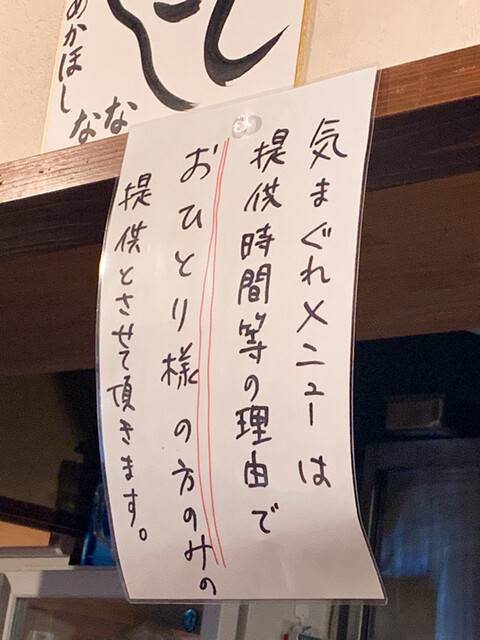 気まぐれメニューは
提供時間等の理由で
おひとり様の方のみの
提供とさせて頂きます。
めかほし
なな